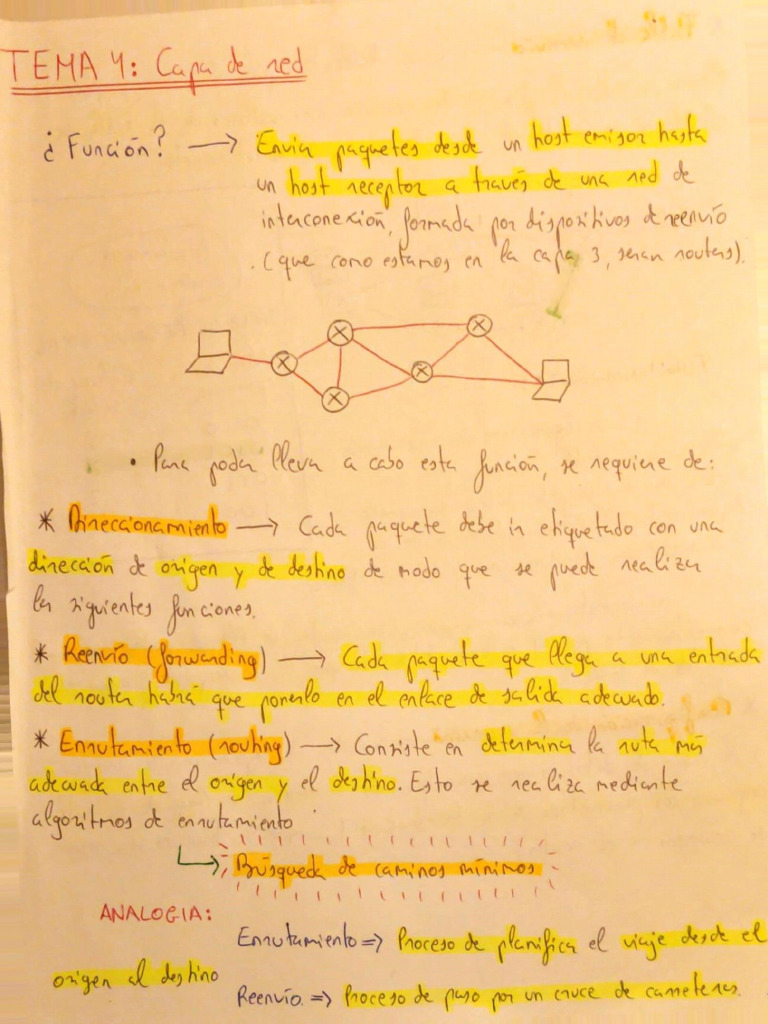 TEMA 4: Capa de red
¿Función? → Enviar paquetes desde un host emisor hasta
un host receptor a través de una red de
interconexión, formada por dispositivos de reenvío
(que como estamos en la capa 3, seran routers).
• Para poder llevar a cabo esta función, se requiere de:
* Direccionamiento → Cada paquete debe ir etiquetado con una
dirección de origen y de destino de modo que se puede realizar
las siguientes funciones.
* Reenvío (forwarding) → Cada paquete que llega a una entrada
del router habrá que ponerlo en el enlace de salida adecuado.
* Enrutamiento (routing) → Consiste en determinar la ruta más
adecuada entre el origen y el destino. Esto se realiza mediante
algoritmos de enrutamiento
↳ Búsqueda de caminos mínimos
ANALOGIA:
Enrutamiento => Proceso de planificar el viaje desde el
origen al destino
Reenvío => Proceso de paso por un cruce de carreteras.